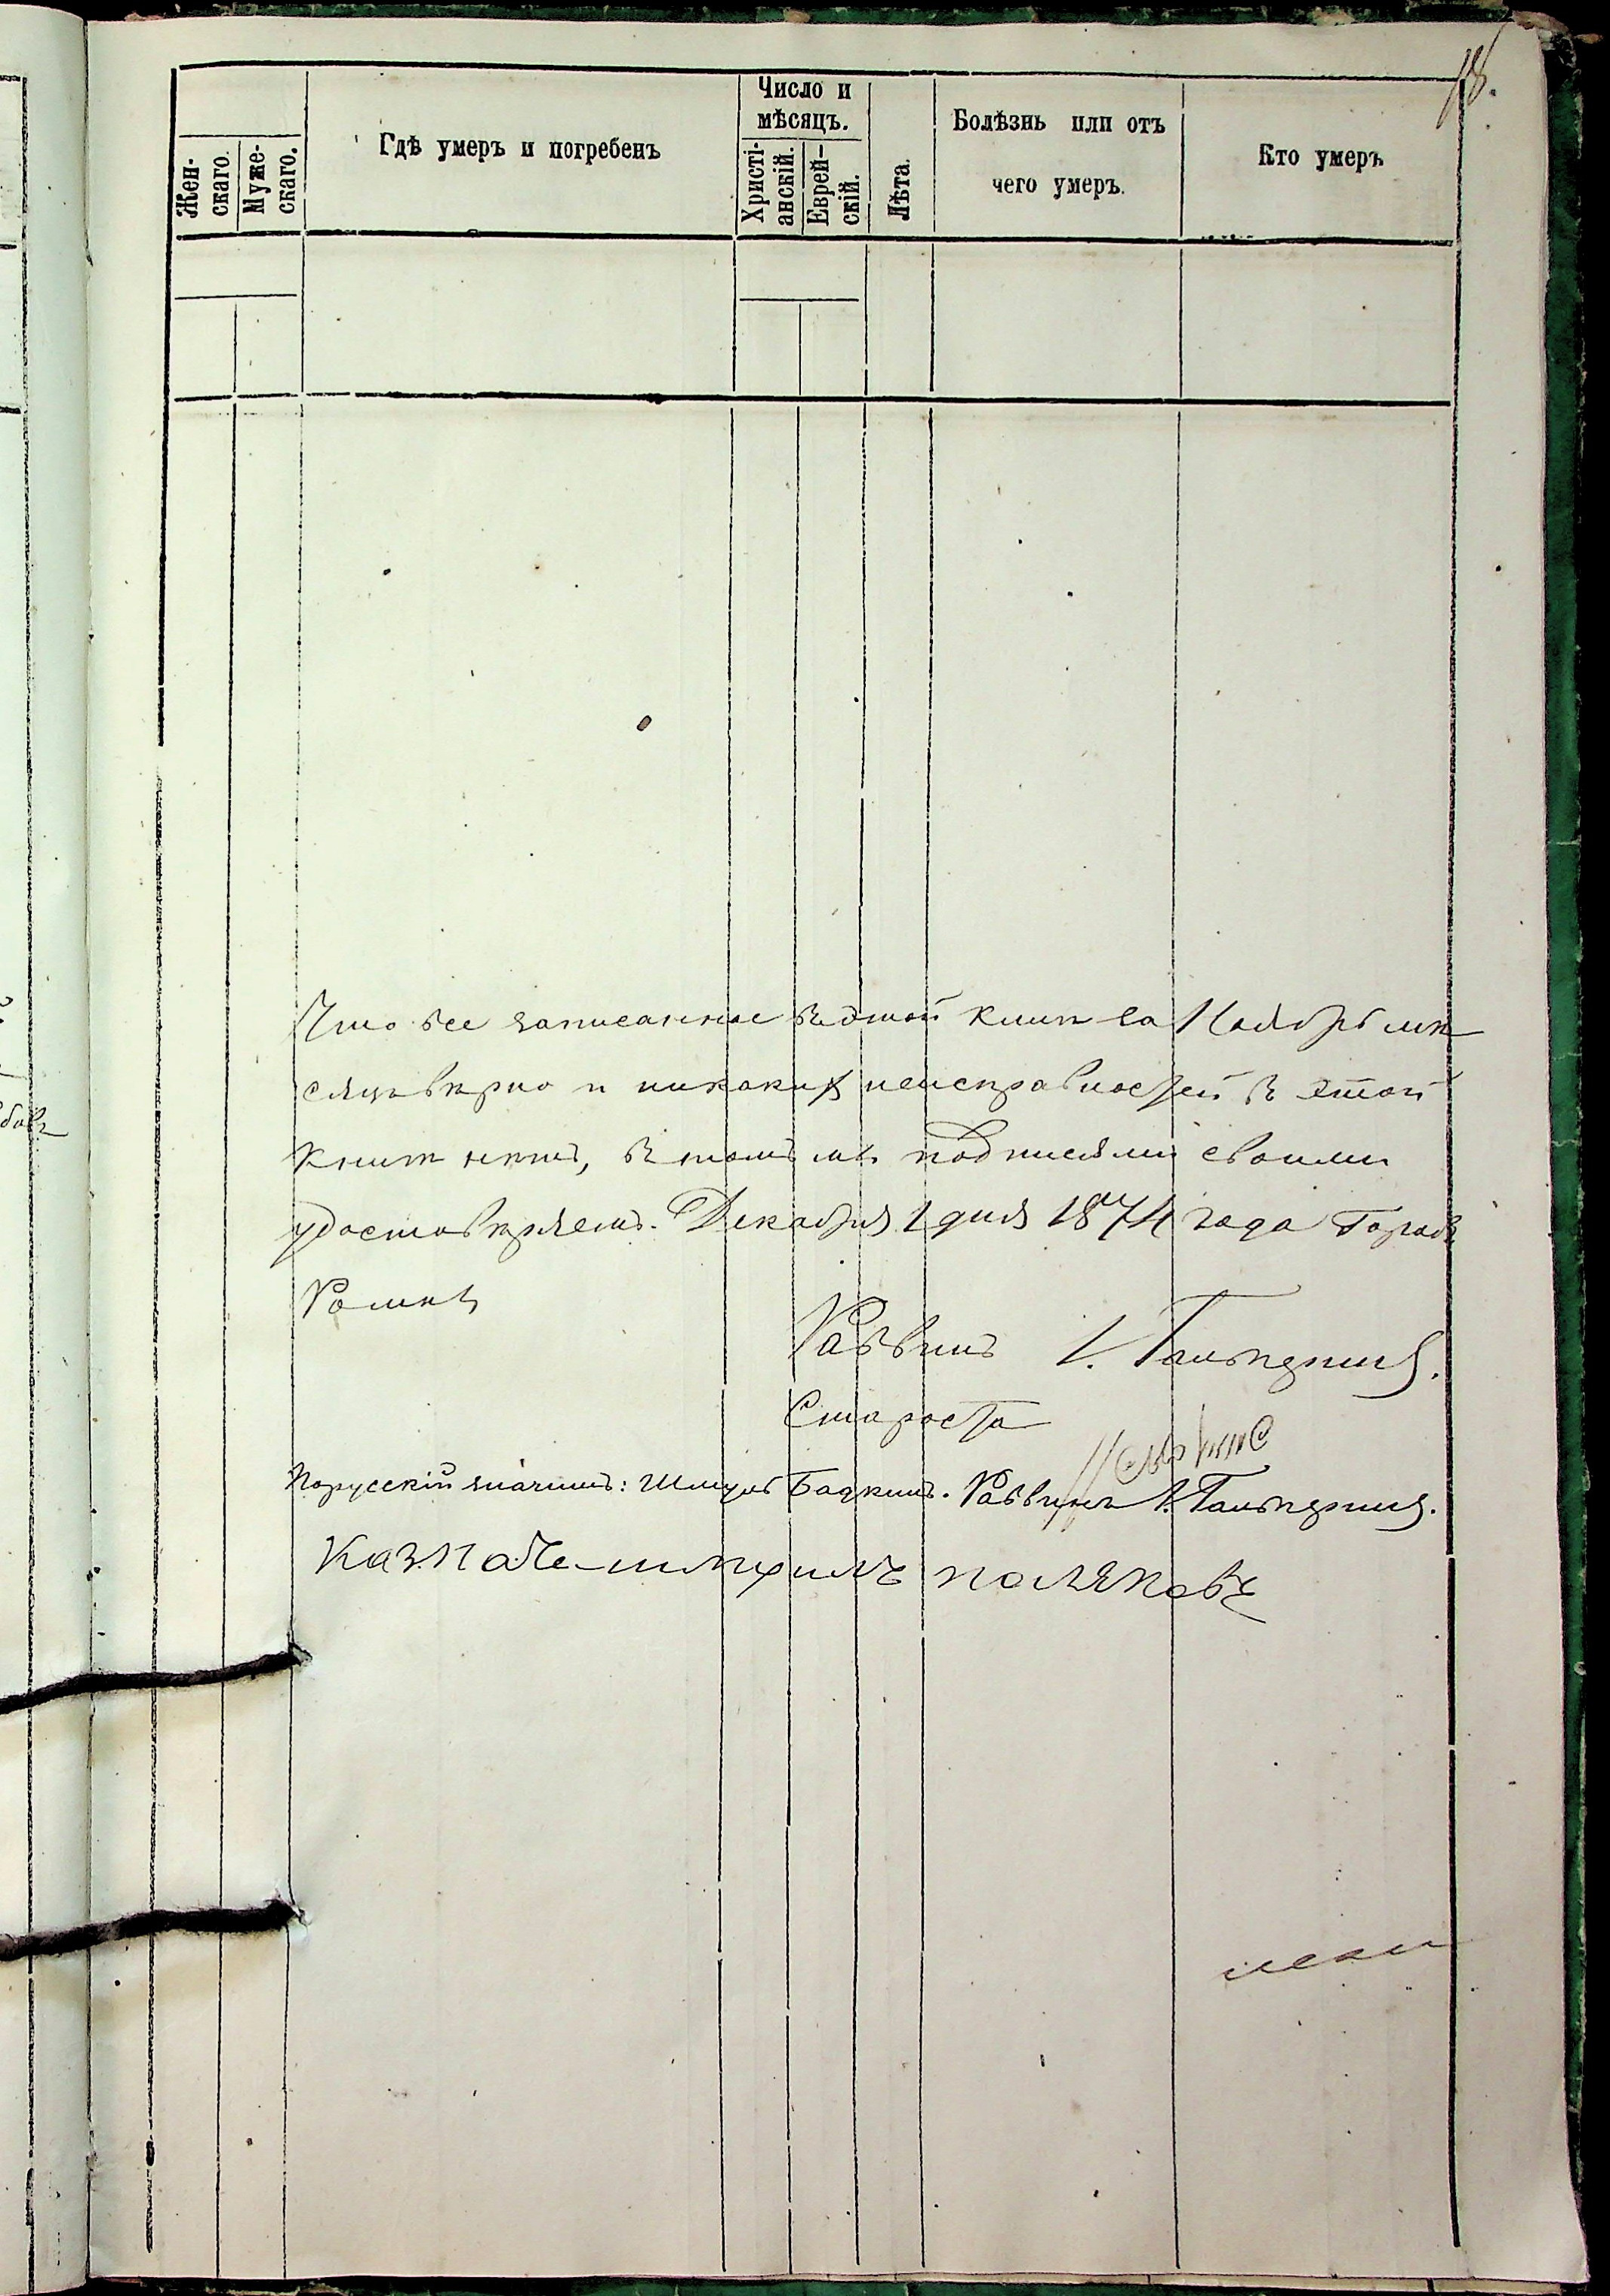 18.
Жен-
скаго.
Муже-
скаго.
Гдѣ умеръ и погребенъ
Число и
мѣсяцъ.
Христі-
анскій.
Еврей-
скій.
Лѣта.
Болѣзнь или отъ
чего умеръ.
Кто умеръ
Что все записанное въ этой книгѣ за Ноябрь мѣ
сяцъ вѣрно и никакихъ неисправностей въ этой
книгѣ нѣтъ, въ томъ мы подписями своими
удостовѣряемъ. Декабря 1 дня 1874 года Городъ
Ромны
Раввинъ
Староста
Порусскій значитъ: Шмуль Бадкинъ. Раввинъ
Казначе поляковъ